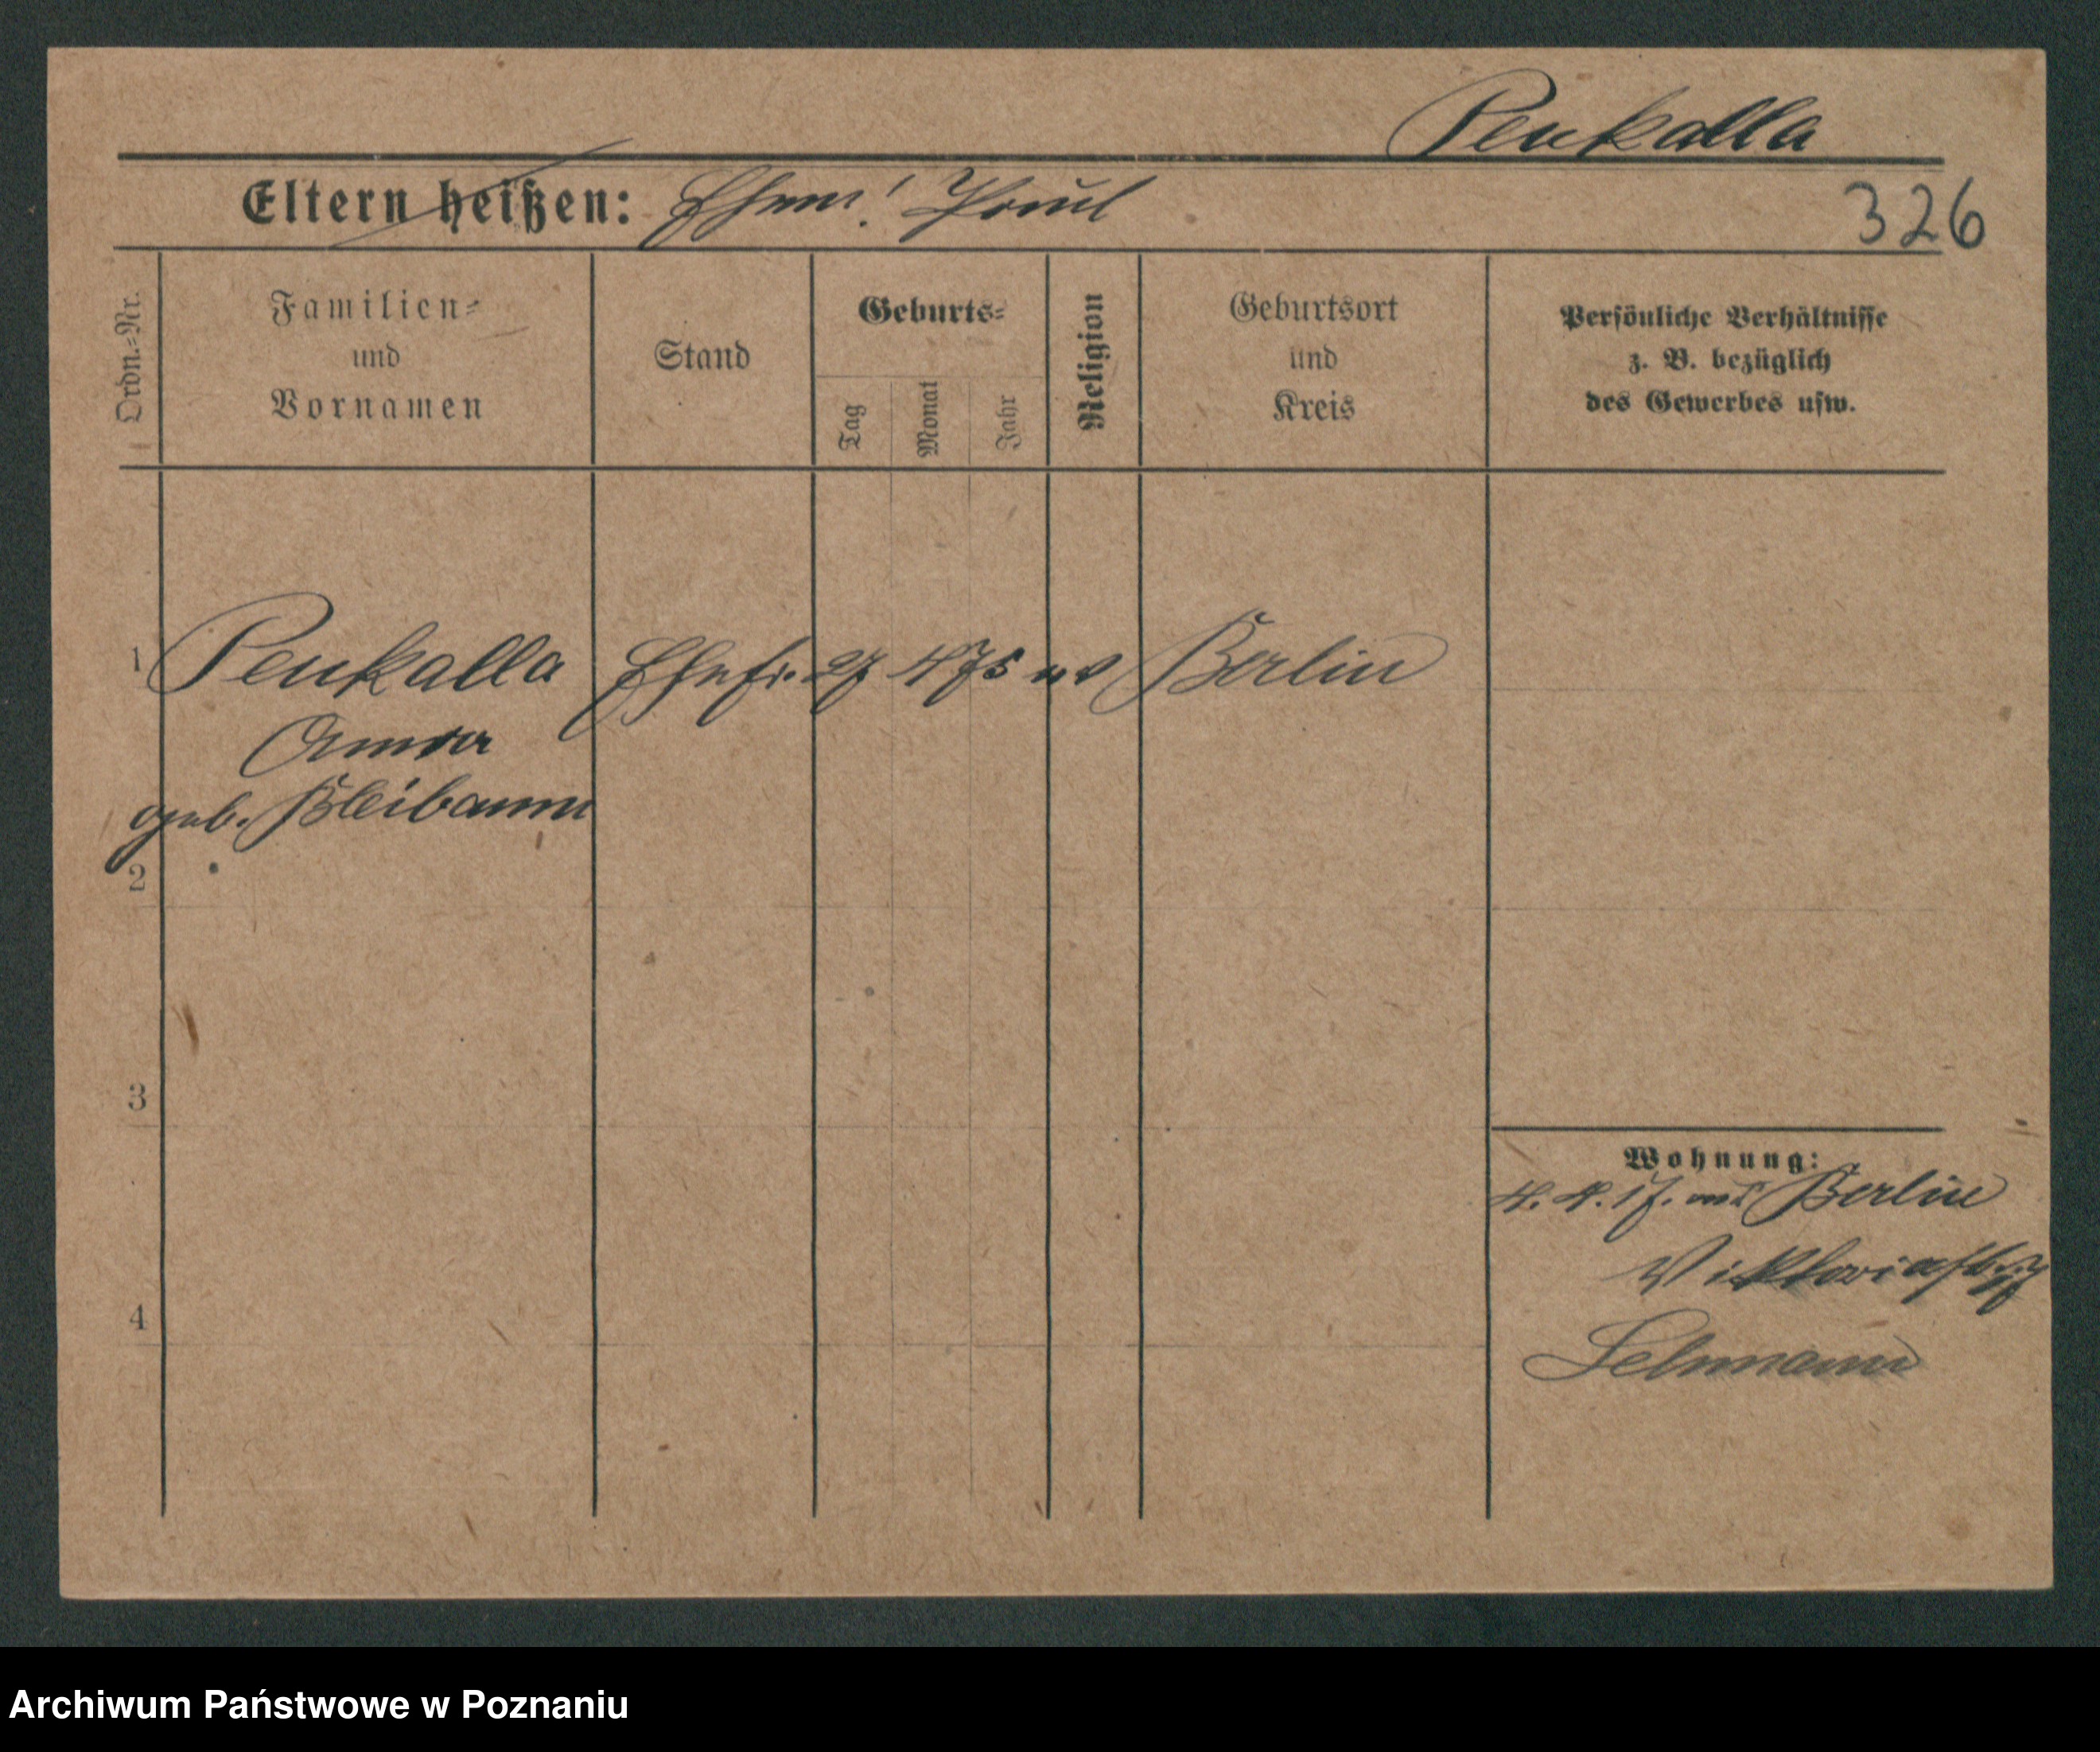 Penkalla
Eltern heißen: Ehem! Paul
326
Ordn.-Nr.
Familien-
und
Vornamen
Stand
Geburts-
Tag
Monat
Jahr
Religion
Geburtsort
und
Kreis
Persönliche Verhältnisse
z. B. bezüglich
des Gewerbes usw.
1 Penkalla Ehefr. 27 4 75 ev Berlin
Anna
geb. Bleibaum
2
3
4
Wohnung:
4. 4. 17. Berlin
Viktoriastr.
Archiwum Państwowe w Poznaniu